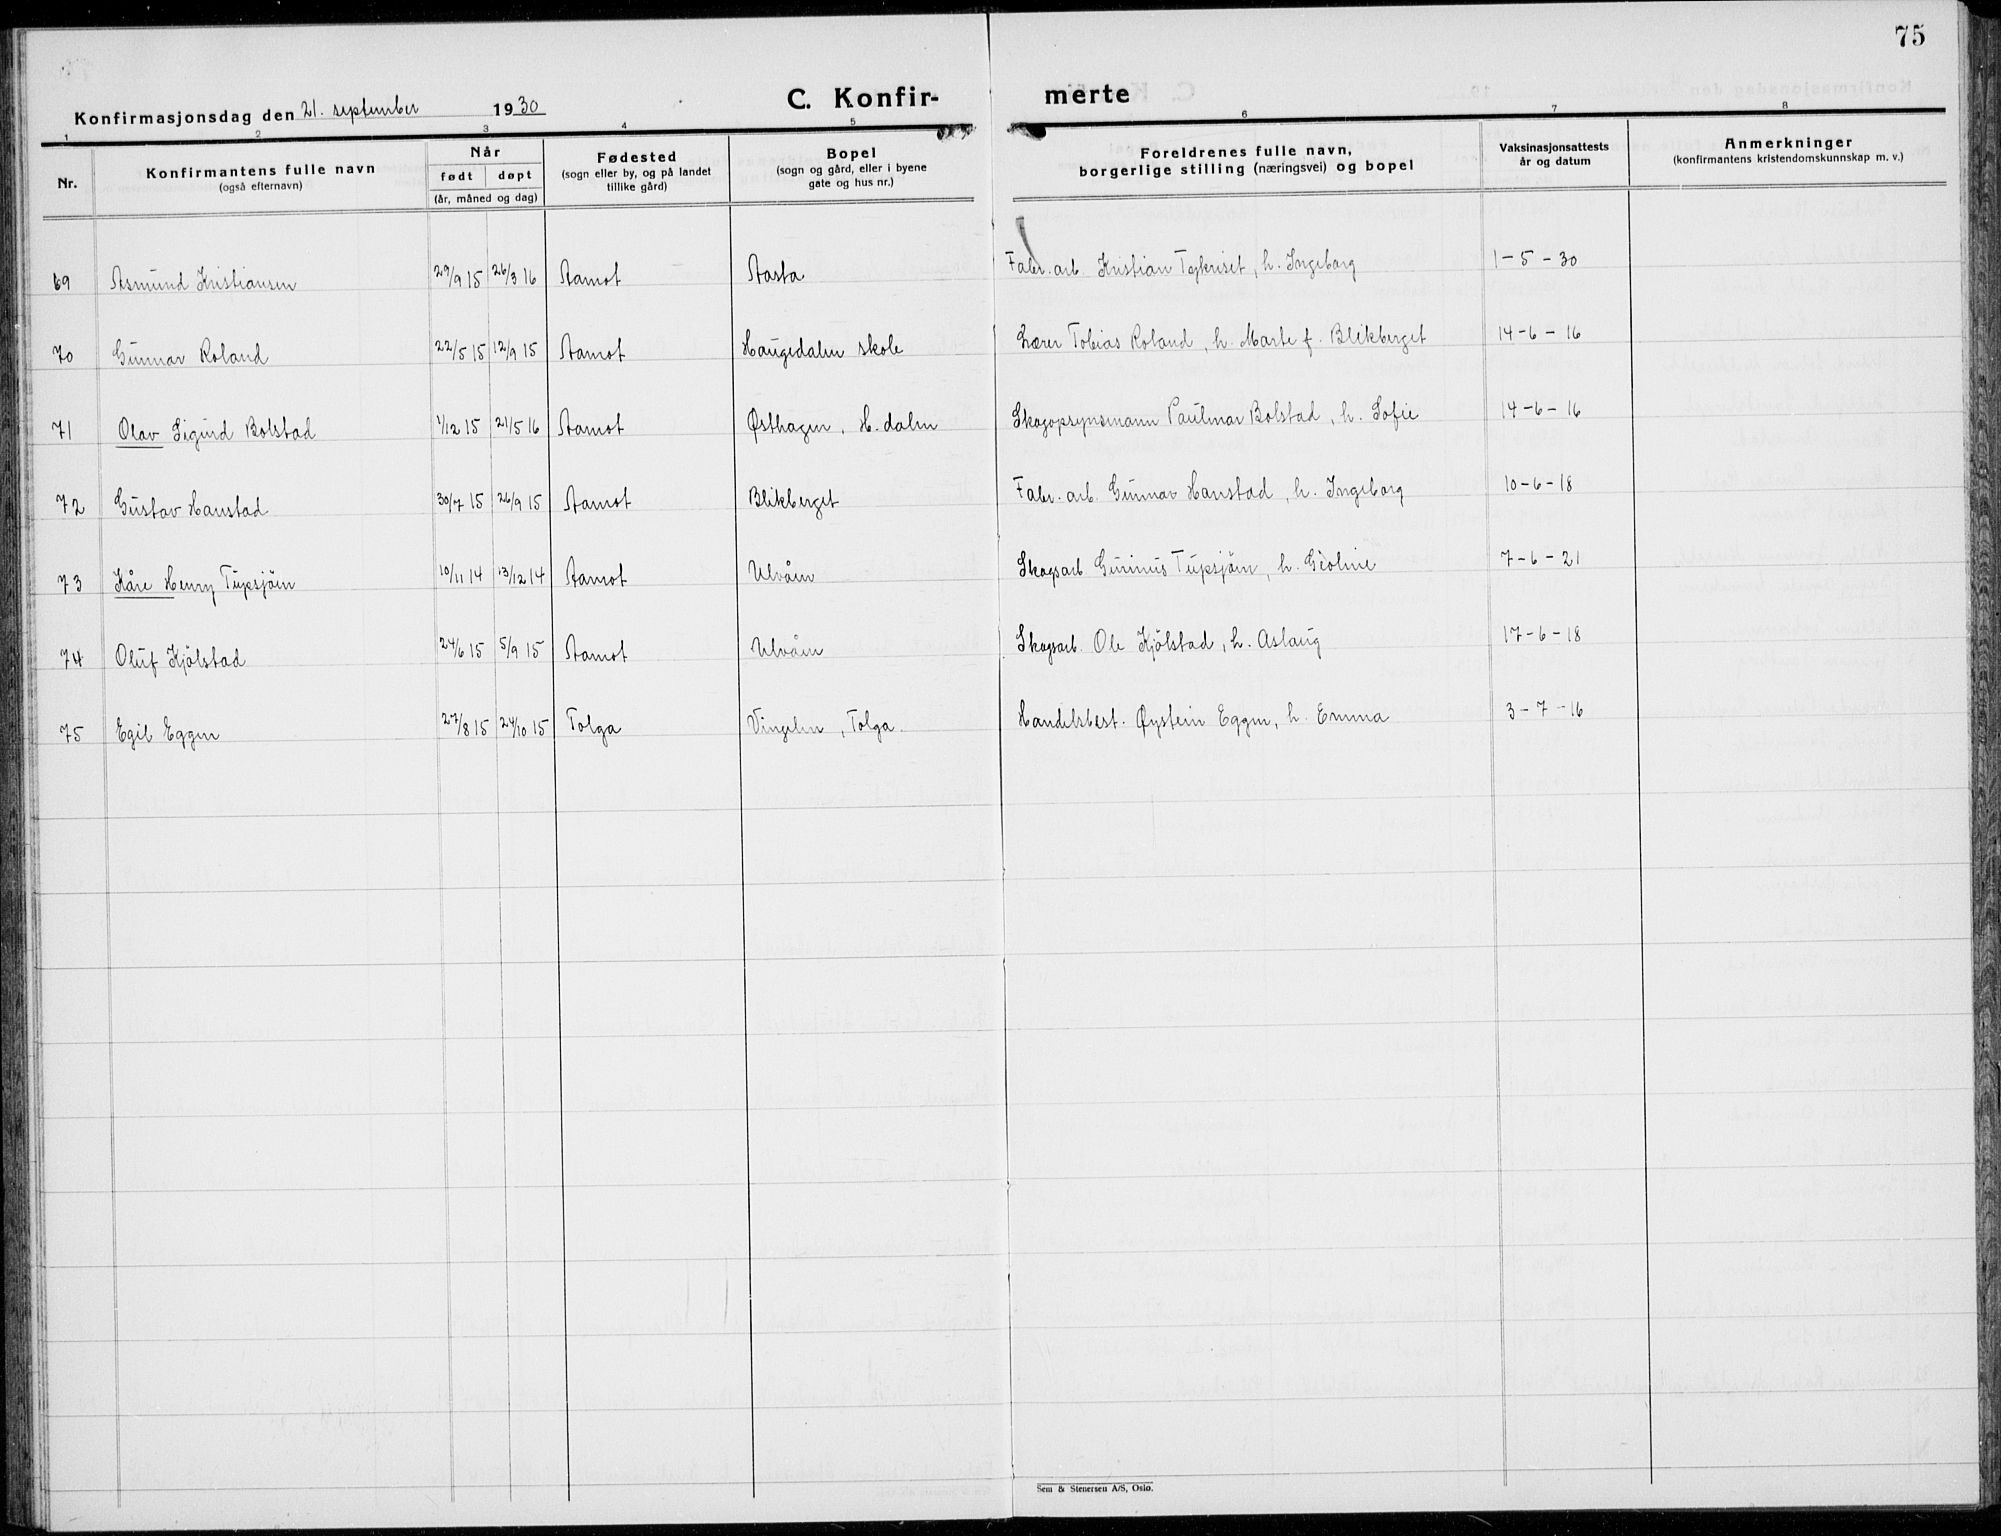 75
Konfirmasjonsdag den 21. september 1930 C. Konfir- merte
1 2 3 4 5 6 7 8
Nr. Konfirmantens fulle navn (også efternavn) Når født døpt (år, måned og dag) Fødested (sogn eller by, og på landet tillike gård) Bopel (sogn og gård, eller i byene gate og hus nr.) Foreldrenes fulle navn, borgerlige stilling (næringsvei) og bopel Vaksinasjonsattests år og datum Anmerkninger (konfirmantens kristendomskunnskap m. v.)
69 Asmund Kristiansen 29/9 15 26/3 16 Aamot Aasta Fabr. arb. Kristian , h. Ingeborg 1-5-30
70 Gunnar Roland 22/5 15 12/9 15 Aamot Haugedalen skole Lærer Tobias Roland, h. Marte f. Blikberget 14-6-16
71 Olav Sigurd Bolstad 1/12 15 21/5 16 Aamot Østhagen, H.dalen Skogopsynsmann Paulmar Bolstad, h. Sofie 14-6-16
72 Gustav Hanstad 30/7 15 26/9 15 Aamot Blikberget Fabr. arb. Gunnar Hanstad, h. Ingeborg 10-6-18
73 Kåre Henry Tupsjøen 10/11 14 13/12 14 Aamot Ulvåen Skogsarb. Gunnus Tupsjøen, h. Goline 7-6-21
74 Oluf Kjölstad 24/6 15 5/9 15 Aamot Ulvåen Skogsarb. Ole Kjölstad, h. Aslaug 17-6-18
75 Egil Eggen 27/8 15 24/10 15 Tolga Vingelen, Tolga. Handelsbest. Øystein Eggen, h. Emma 3-7-16
Sem & Stenersen A/S, Oslo.